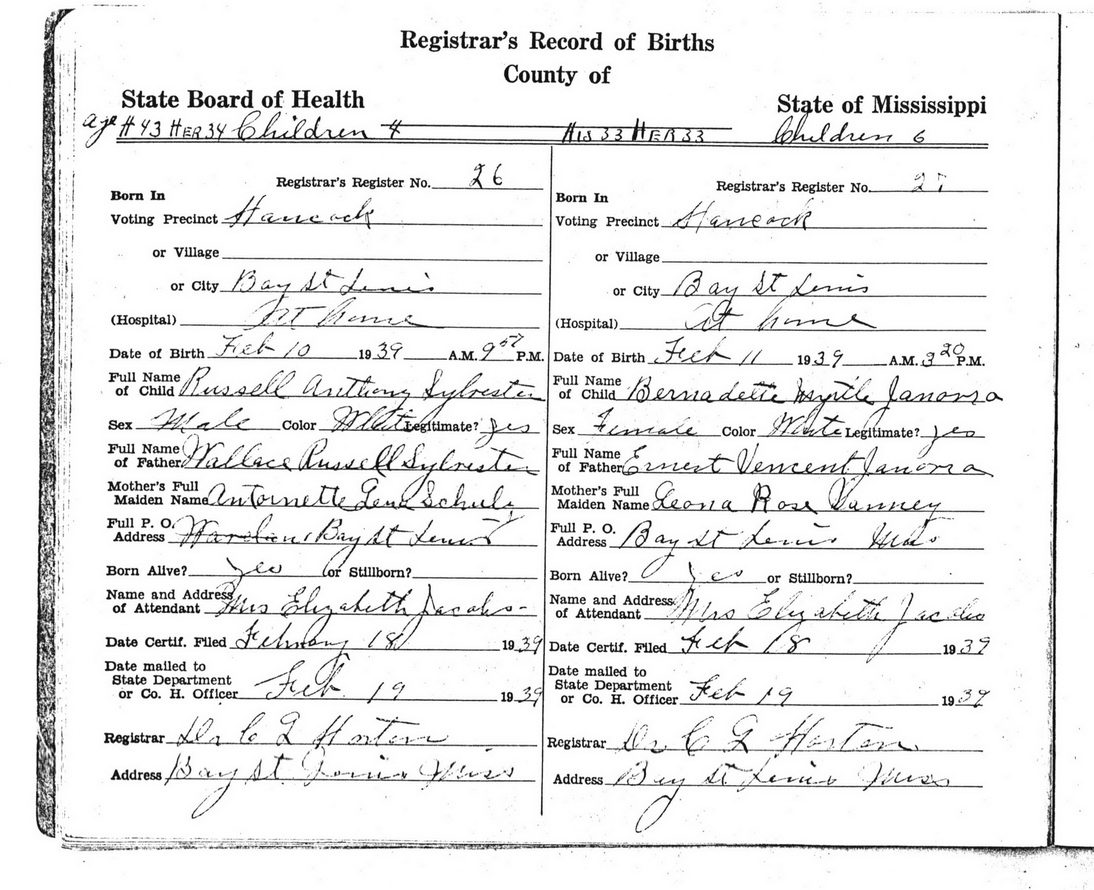 Registrar's Record of Births
County of
State Board of Health
State of Mississippi
age H 43 HER 34 Children 4
HIS 33 HER 33 Children 6
Registrar's Register No. 26
Born In
Voting Precinct Hancock
or Village
or City Bay St Louis
(Hospital) At home
Date of Birth Feb 10 1939 A.M. 9 P.M.
Full Name
of Child Russell Anthony Sylvester
Sex Male Color White Legitimate? yes
Full Name
of Father Wallace Russell Sylvester
Mother's Full
Maiden Name Antoinette Schulz
Full P. O.
Address Bay St Louis
Born Alive? yes or Stillborn?
Name and Address
of Attendant Mrs Elizabeth Jacobs
Date Certif. Filed February 18 1939
Date mailed to
State Department
or Co. H. Officer Feb 19 1939
Registrar Dr C L Horton
Address Bay St Louis Miss
Registrar's Register No. 27
Born In
Voting Precinct Hancock
or Village
or City Bay St Louis
(Hospital) At home
Date of Birth Feb 11 1939 A.M. 3 20 P.M.
Full Name
of Child Bernadette Myrtle Janovra
Sex Female Color White Legitimate? yes
Full Name
of Father Ernest Vencent Janovra
Mother's Full
Maiden Name Leona Rose Vanney
Full P. O.
Address Bay St Louis Miss
Born Alive? Yes or Stillborn?
Name and Address
of Attendant Mrs Elizabeth Jacobs
Date Certif. Filed Feb 18 1939
Date mailed to
State Department
or Co. H. Officer Feb 19 1939
Registrar Dr C L Horton
Address Bay St Louis Miss